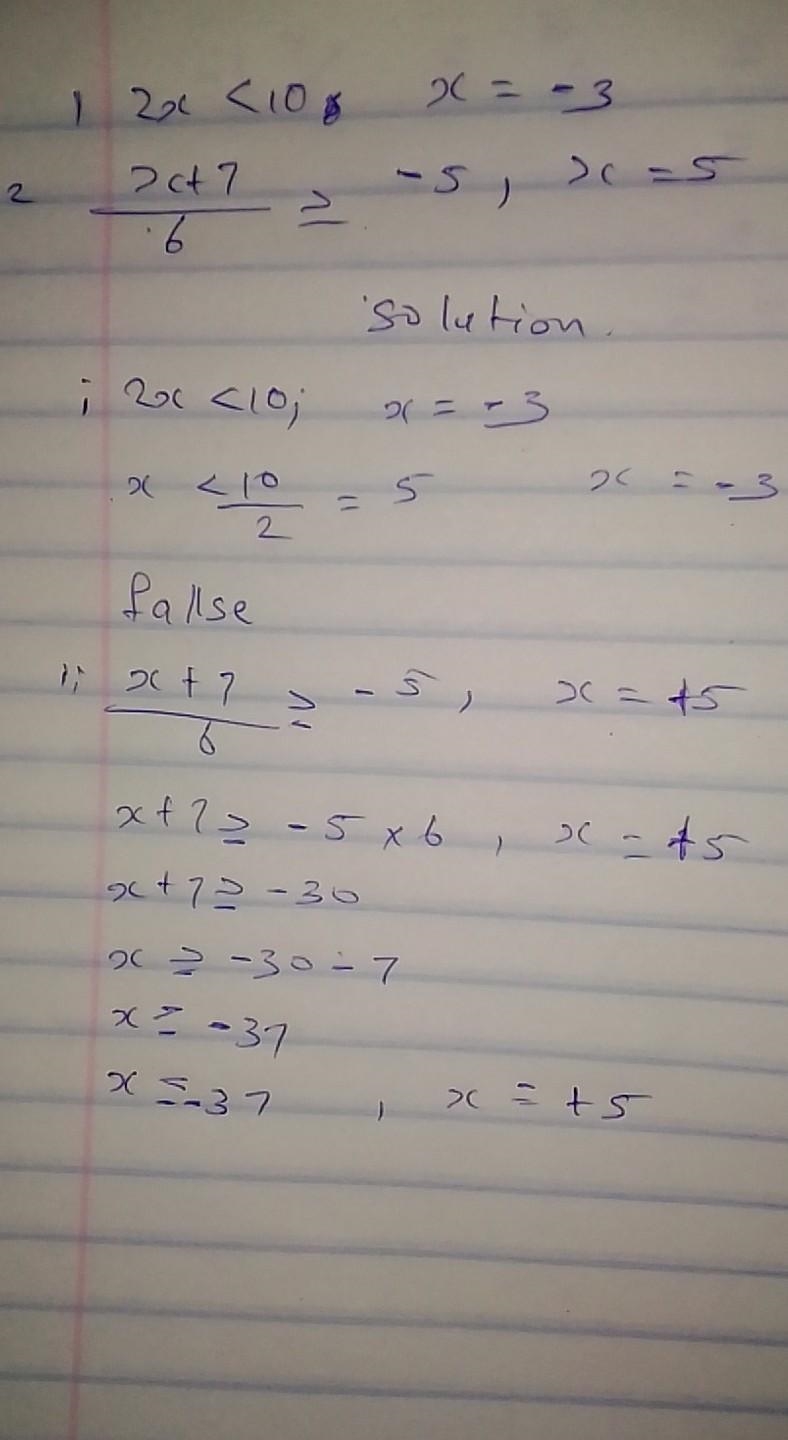 1 2x < 10, x = -3
2 x+7/6 ≥ -5, x = 5
solution.
i 2x < 10; x = -3
x < 10/2 = 5 x = -3
fallse
ii x + 7/6 ≥ -5, x = +5
x + 7 ≥ -5 x 6, x = +5
x + 7 ≥ -30
x ≥ -30 - 7
x ≥ -37
x ≥ -37, x = +5